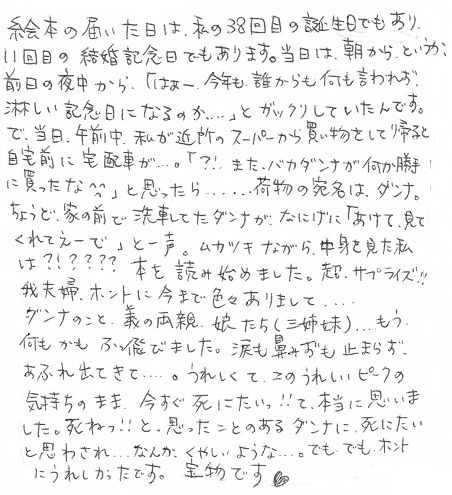 絵本の届いた日は、私の38回目の誕生日でもあり、
11回目の結婚記念日でもあります。当日は、朝から、というか、
前日の夜中から、「はぁ〜、今年も誰からも何も言われず、
淋しい記念日になるのか....」とガックリしていたんです。
で、当日、午前中、私が近所のスーパーから買い物をして帰ると
自宅前に宅配車が...。「?!また、バカダンナが何か勝手
に買ったな^^」と思ったら......荷物の宛名は、ダンナ。
ちょうど、家の前で洗車してたダンナが、なにげに「あけて、見て
くれてえーで」と一声。ムカツキながら、中身を見た私
は?!?????本を読み始めました。超、サプライズ!!
我夫婦、ホントに今まで色々ありまして.....
ダンナのこと、義の両親、娘たち(三姉妹)...もう、
何もかも ふっ飛びました。涙も鼻みずも止まらず、
あふれ出てきて....。うれしくて、このうれしいピークの
気持ちのまま、今すぐ死にたいっ!!て、本当に思いま
した。死ねっ!!と、思ったことのあるダンナに、死にたい
と思わされ...なんか、くやしいような...。でも、でも、ホント
にうれしかったです。宝物です